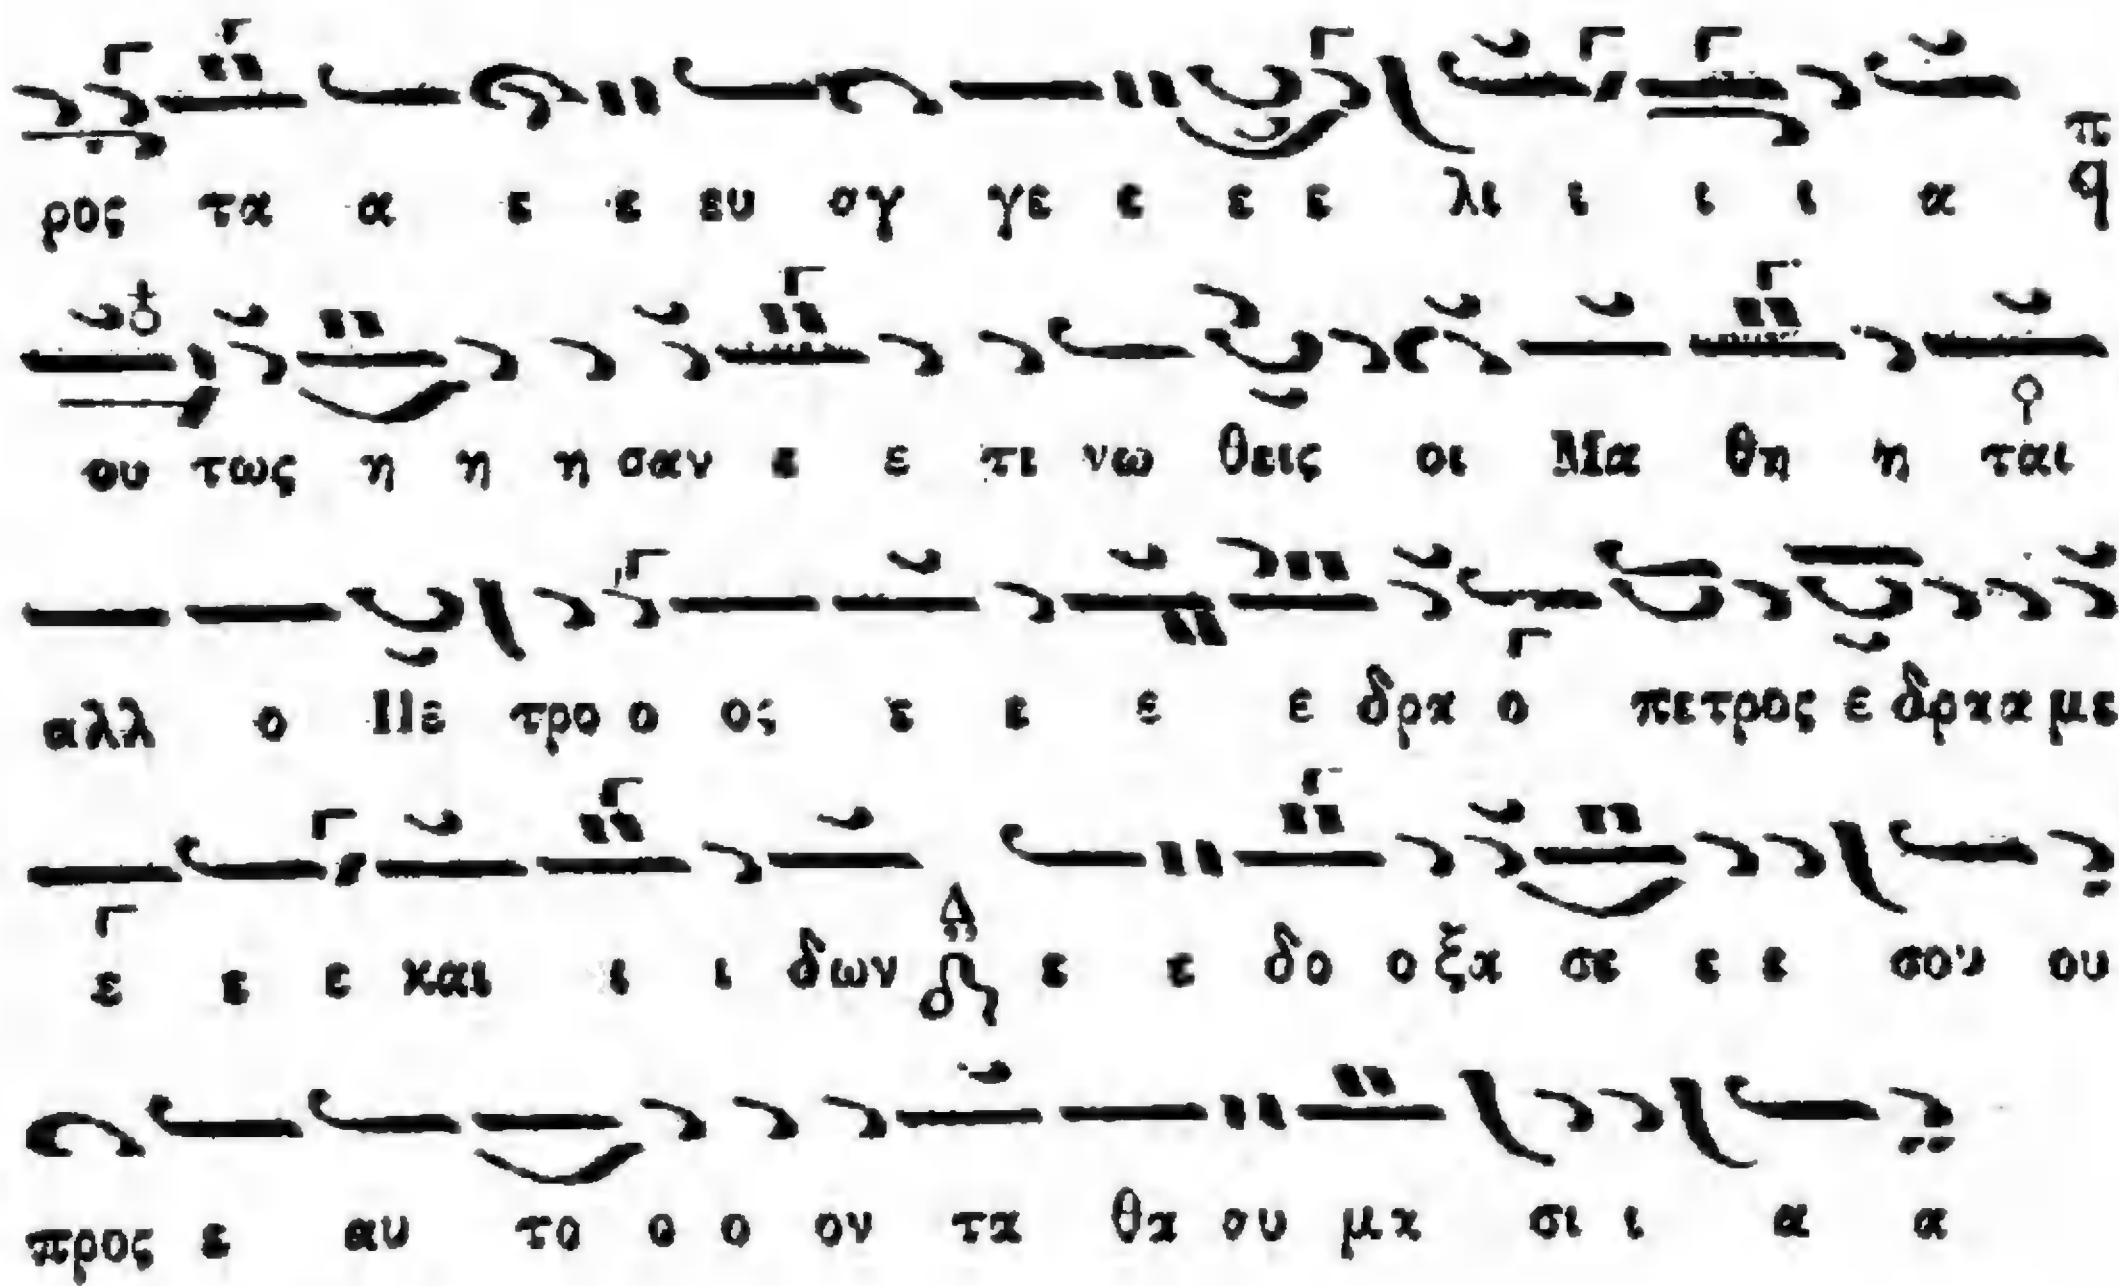 ρος τα α ε ε ευ αγ γε ε ε ε λι ι ι ι α π q
ου τως η η η σαν ε ε τι νω θεις οι Μα θη η ται
αλλ ο Πε τρο ο ος ε ε ε ε δρα ο πετρος ε δραα με
ε ε ε και ι ι δων Δ ε ε δο ο ξα σε ε ε σου ου
προς ε αυ το ο ο ον τα θα αυ μα σι ι α α